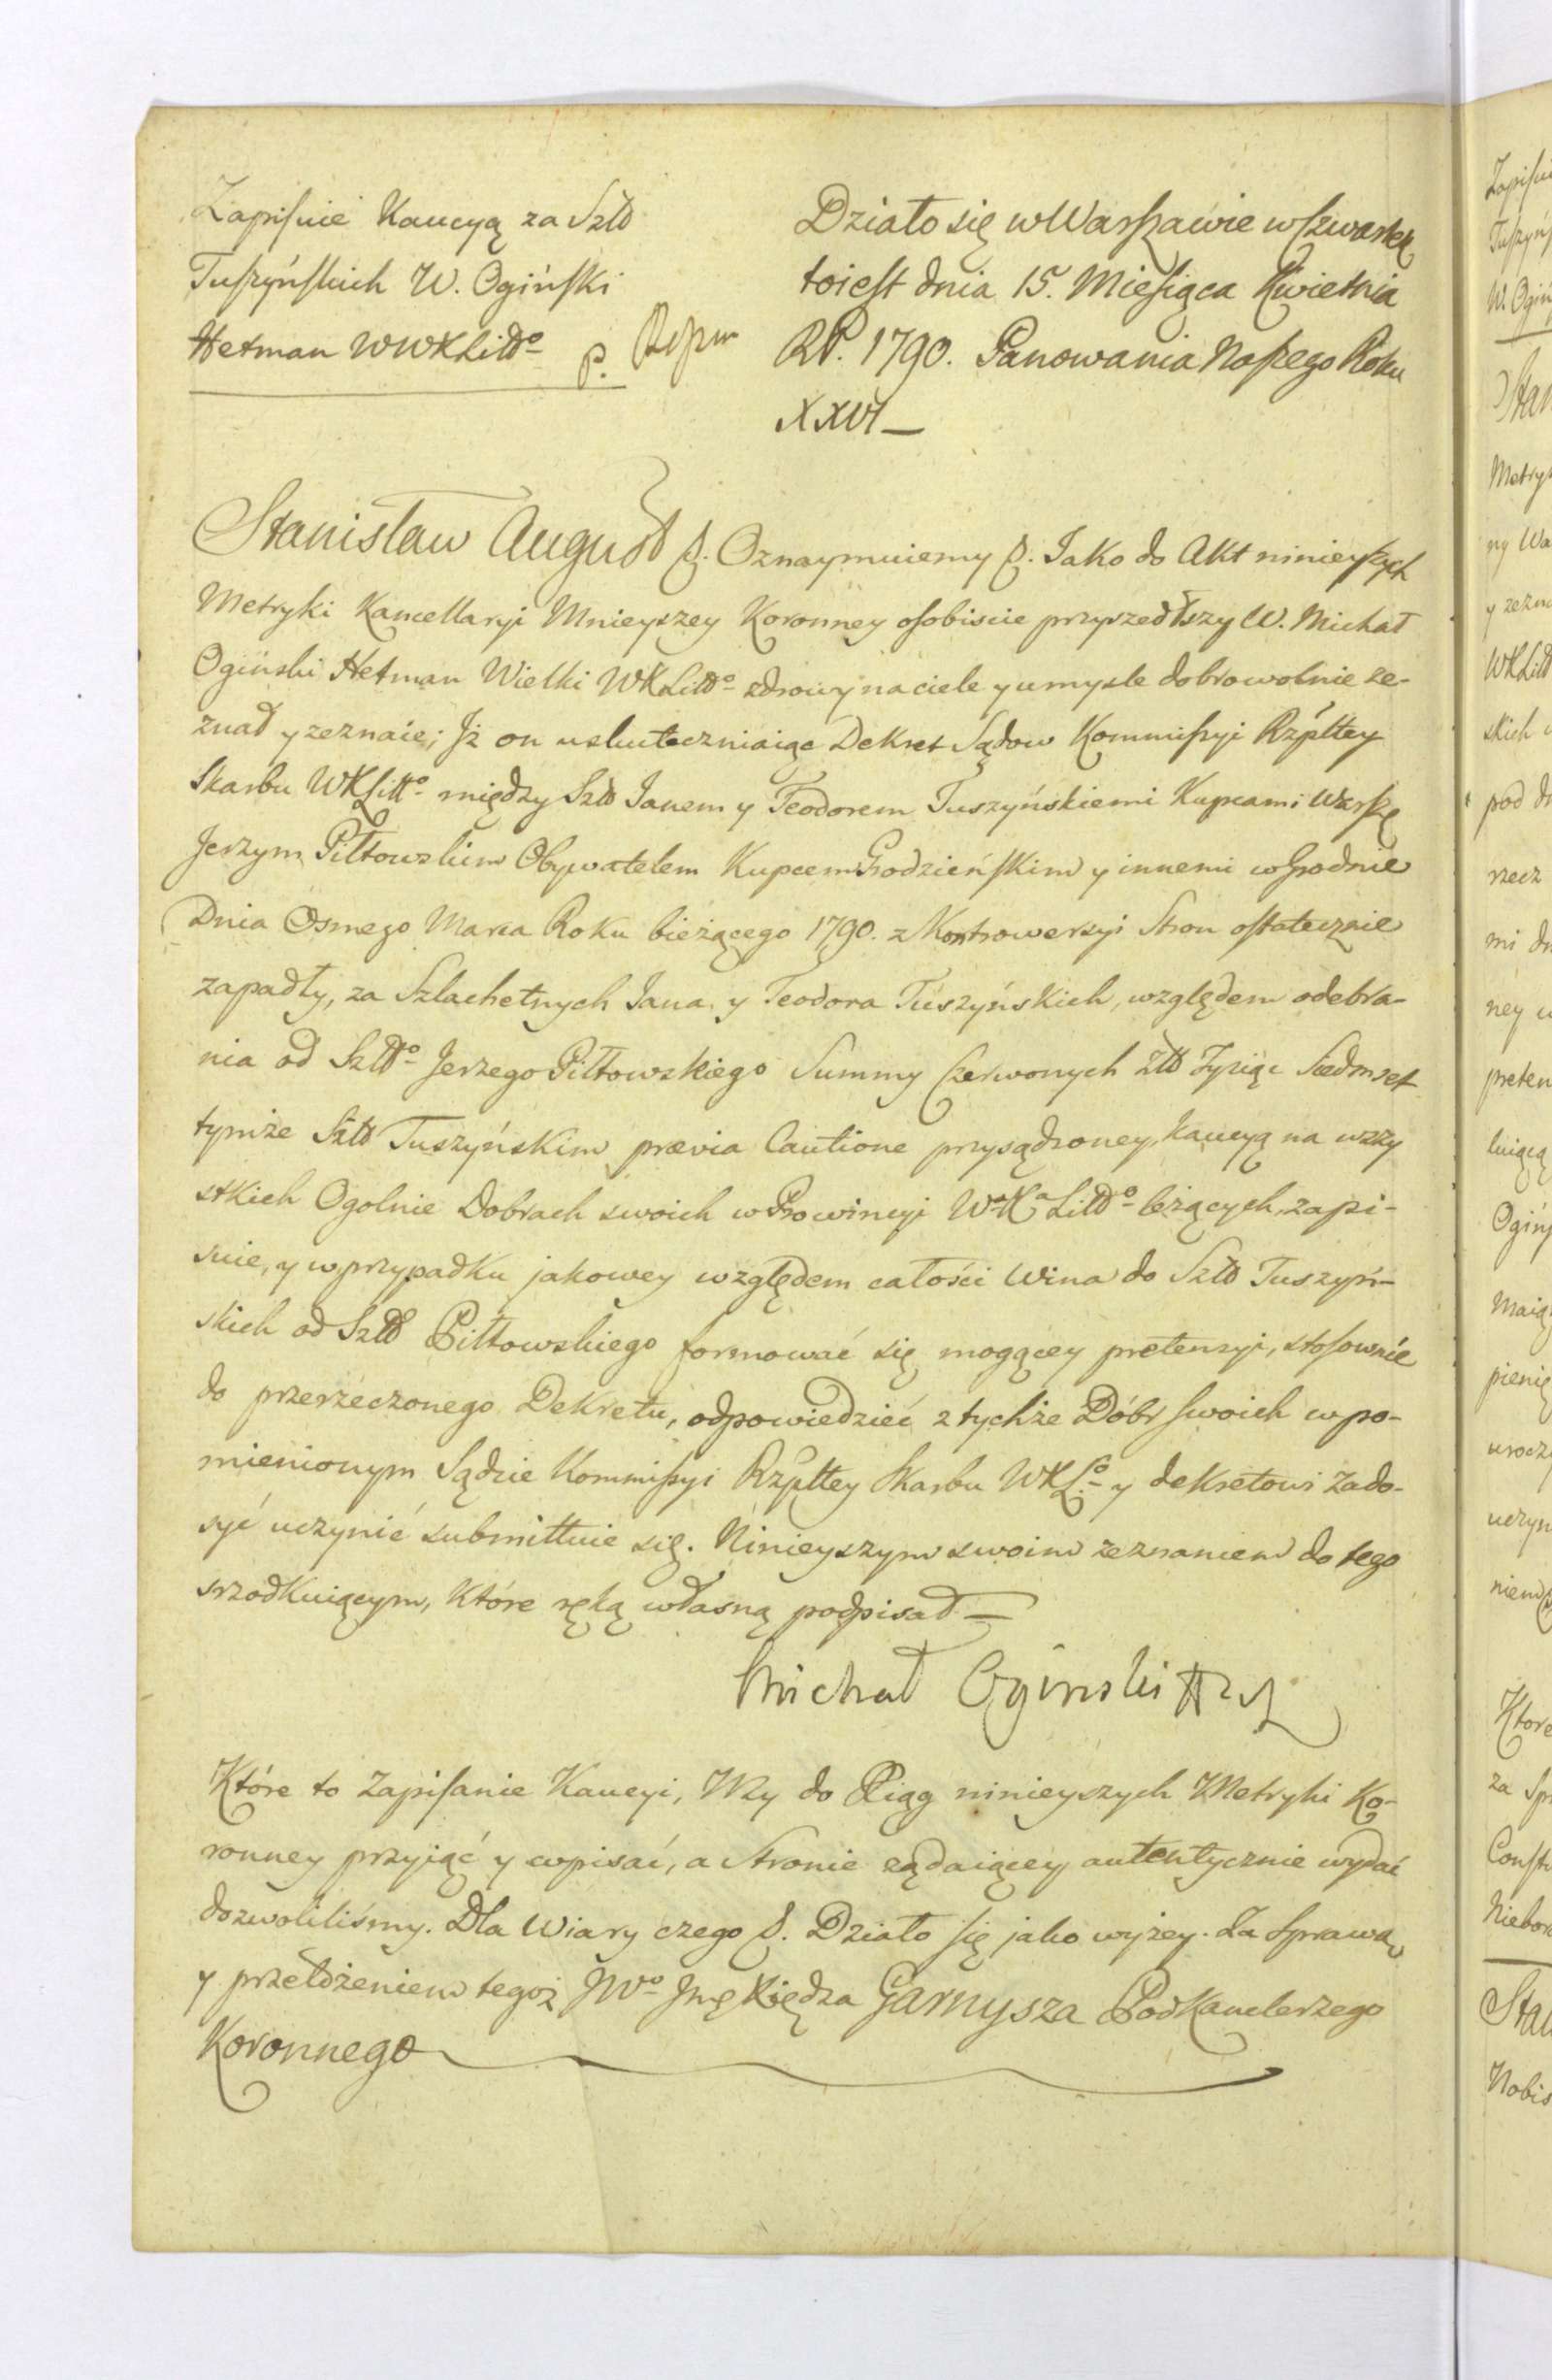 Zapisuie Kaucyą za Szltt
Tuszyńskich W. Ogiński
Hetman WWXLittº p.
Działo się w Warszawie w Czwartek
toiest dnia 15. Miesiąca Kwietnia
RP. 1790. Panowania Naszego Roku
XXVI
Stanisław August &. Oznaymuiemy &. Jako do Akt ninieyszych
Metryki Kancellaryi Mnieyszey Koronney osobiscie przyszedłszy W. Michał
Ogiński Hetman Wielki WXLittº zdrowy na ciele y umysle dobrowolnie ze-
znał y zeznaie; Jż on uskuteczniaiąc Dekret Sądow Kommissyi Rzpltey
Skarbu WXLittº między Szltt Janem y Teodorem Tuszyńskiemi Kupcami Warsz
Jerzym Piłtowskim Obywatelem Kupcem Grodzieńskim y innemi w Grodnie
Dnia Osmego Marca Roku bieżącego 1790. z Kontrowersyi Stron ostatecznie
zapadły, za Szlachetnych Jana y Teodora Tuszyńskich, względem odebra-
nia od Szlttº Jerzego Piłtowskiego Summy Czerwonych Złtt Tysiąc Siedmset
tymże Szltt Tuszyńskim prævia Cautione przysądzoney, kaucyą na wszy
stkich Ogolnie Dobrach swoich w Prowincyi WªXª Littº leżących, zapi-
suie, y w przypadku jakowey względem całości Wina do Szltt Tuszyń-
skich od Szltt Piłtowskiego formować się mogącey pretensyi, stosownie
do przerzeczonego Dekretu, odpowiedzieć z tychże Dóbr swoich w po-
mienionym Sądzie Kommissyi Rzpltey Skarbu WXLº y dekretowi zado-
syć uczynić submittuie się. Ninieyszym swoim zeznaniem do tego
srzodkuiącym, które ręką własną podpisał
Michał Oginski
Które to Zapisanie Kaucyi, My do Xiąg ninieyszych Metryki Ko-
ronney przyiąć y wpisać, a Stronie żądaiącey autentycznie wydać
dozwoliliśmy. Dla Wiary czego &. Działo się jako wyżey. Za sprawą
y przełożeniem tegoż JWº Jmę Xiędza Garnysza PodKanclerzego
Koronnego